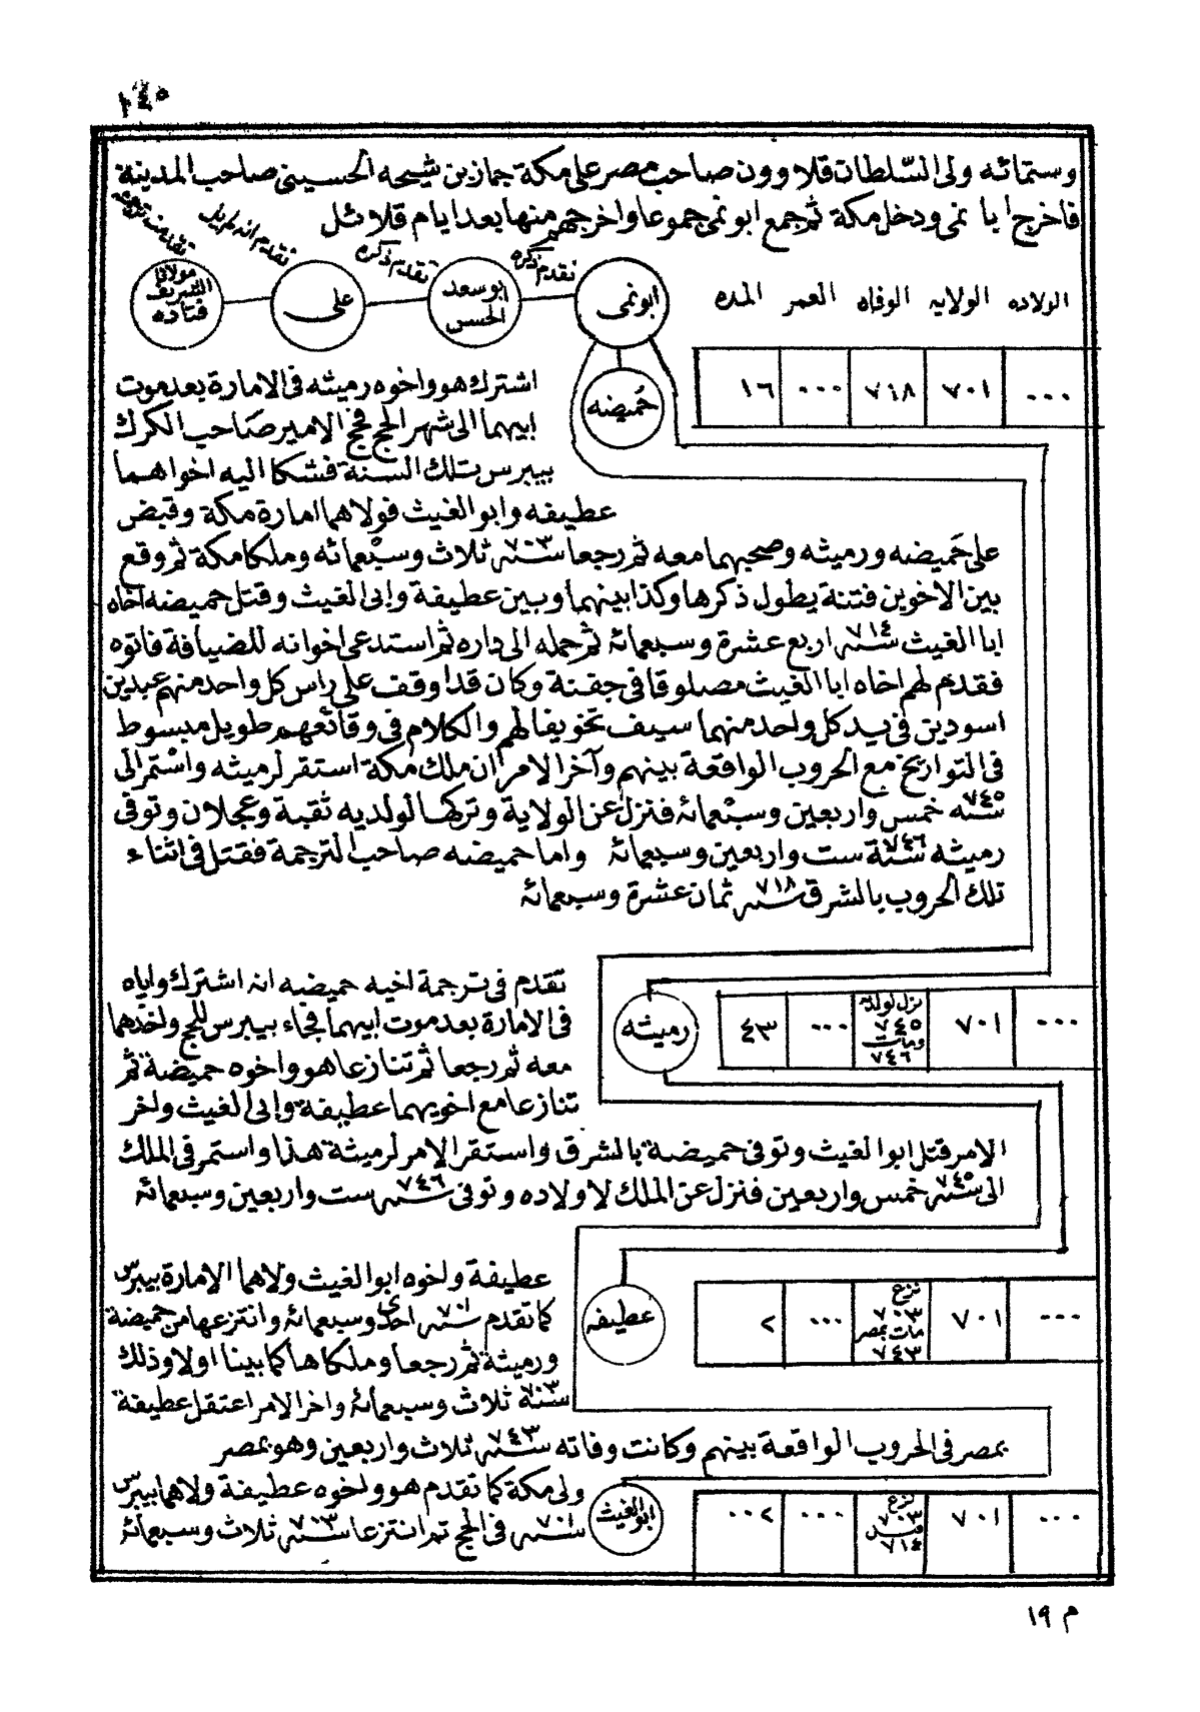 ١٤٥
وستمائه ولى السّلطان قلاوون صاحب مصر على مكة جماز بن شيحه الحسينى صاحب المدينة
فاخرج ابا نمى ودخل مكة ثم جمع ابو نمى جموعا واخرجهم منها بعد ايام قلائل
الولاده الولايه الوفاه العمر المده
ابو نمى
تقدم ذكره
ابو سعد الحسن
تقدم ذكره
على
تقدم انه لم يل
مولانا الشريف قتاده
... ٧٠١ ٧١٨ ... ١٦
حُميضه
اشترك هو واخوه رميثه فى الامارة بعد موت
ابيهما الى شهر الحج فحج الامير صَاحب الكرك
بيبرس تلك السنة فشكا اليه اخواهما
عطيفه وابو الغيث فولاهما امارة مكة وقبض
على حَميضه ورميثه وصحبهما معه ثم رجعا سنه ٧٠٣ ثلاث وسبْعمائه وملكا مكة ثم وقع
بين الاخوين فتنة يطول ذكرها وكذا بينهما وبين عطيفة وابى الغيث وقتل حميضه اخاه
ابا الغيث سنه ٧١٤ اربع عشرة وسبعمائه ثم حمله الى داره ثم استدعى اخوانه للضيافة فاتوه
فقدم لهم اخاه ابا الغيث مصلوقا فى جفنة وكان قد اوقف على راس كل واحد منهم عبدين
اسودين فى يد كل واحد منهما سيف تخويفا لهم والكلام فى وقائعهم طويل مبسوط
فى التواريخ مع الحروب الواقعة بينهم وآخر الامر ان ملك مكة استقر لرميثه واسْتمر الى
سنه ٧٤٥ خمس واربعين وسبْعمائه فنزل عن الولاية وتركها لولديه ثقبة وعجلان وتوفى
رميثه سنة ٧٤٦ ست واربعين وسبعمائه واما حميضه صاحب الترجمة فقتل فى اثناء
تلك الحروب بالشرق سنه ٧١٨ ثمان عشرة وسبعمائه
... ٧٠١ نزل لولديه ٧٤٥ ومات ٧٤٦ ... ٤٣
رميثه
تقدم فى ترجمة اخيه حميضه انه اشترك واياه
فى الامارة بعد موت ابيهما فجاء بيبرس للحج واخذهما
معه ثم رجعا ثم تنازعا هو واخوه حميضة ثم
تنازعا مع اخويهما عطيفة وابى الغيث واخر
الامر قتل ابو الغيث وتوفى حميضة بالشرق واستقر الامر لرميثة هذا واستمر فى الملك
الى سنه ٧٤٥ خمس واربعين فنزل عن الملك لاولاده وتوفى سنه ٧٤٦ ست واربعين وسبعمائه
... ٧٠١ نزع ٧٠٣ مات بمصر ٧٤٣ ... ٢
عطيفه
عطيفة واخوه ابو الغيث ولاهما الامارة بيبرس
كما تقدم سنه ٧٠١ احدى وسبعمائه وانتزعها من حميضة
ورميثة ثم رجعا وملكاها كما بينا اولا وذلك
سنة ٧٠٣ ثلاث وسبعمائه واخر الامر اعتقل عطيفة
بمصر فى الحروب الواقعة بينهم وكانت وفاته سنه ٧٤٣ ثلاث واربعين وهو بمصر
... ٧٠١ نزع ٧٠٣ قتل ٧١٤ ... ٠٠٢
ابو الغيث
ولى مكة كما تقدم هو واخوه عطيفة ولاهما بيبرس
سنه ٧٠١ فى الحج ثم انتزعا سنه ٧٠٣ ثلاث وسبعمائه
م ١٩